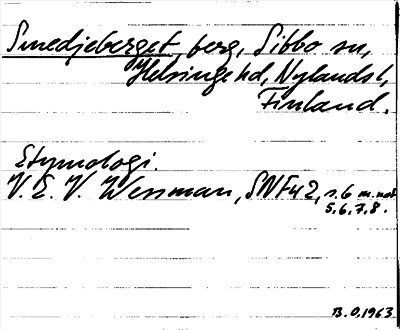 Smedjeberget, berg, Sibbo sn,
Helsinge hd, Nylands l,
Finland.
Etymologi.
V. E. V. Wessman, SNF 42, s. 6 m. not
5, 6, 7, 8.
B. O. 1963